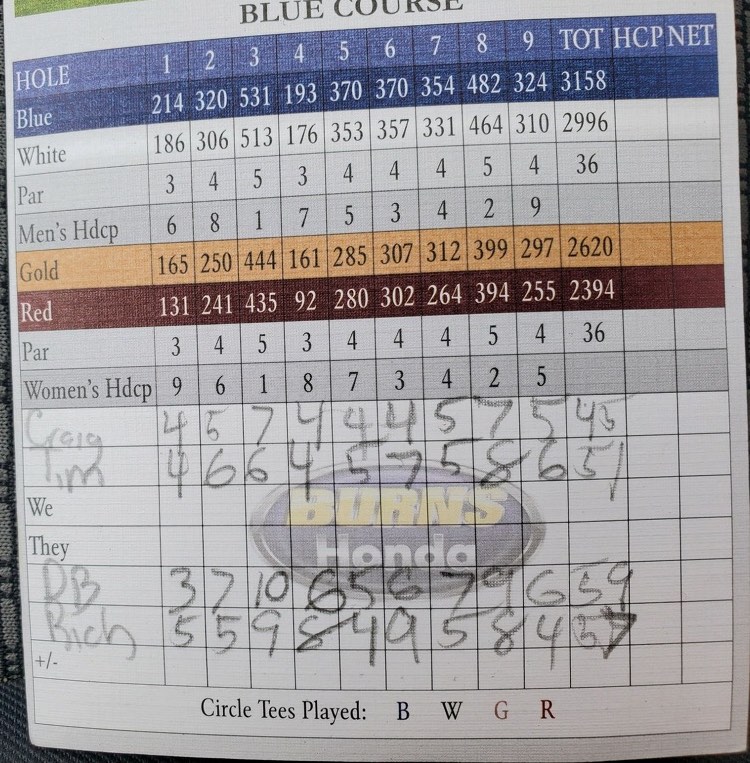 BLUE COURSE
HOLE 1 2 3 4 5 6 7 8 9 TOT HCP NET
Blue 214 320 531 193 370 370 354 482 324 3158
White 186 306 513 176 353 357 331 464 310 2996
Par 3 4 5 3 4 4 4 5 4 36
Men's Hdcp 6 8 1 7 5 3 4 2 9
Gold 165 250 444 161 285 307 312 399 297 2620
Red 131 241 435 92 280 302 264 394 255 2394
Par 3 4 5 3 4 4 4 5 4 36
Women's Hdcp 9 6 1 8 7 3 4 2 5
Craig 4 5 7 4 4 4 5 7 5 45
Tim 4 6 6 4 5 7 5 8 6 51
We
BURNS
They
Honda
DB 3 7 10 6 5 6 7 9 6 59
Rich 5 5 9 8 4 9 5 8 4 57
+/-
Circle Tees Played: B W G R